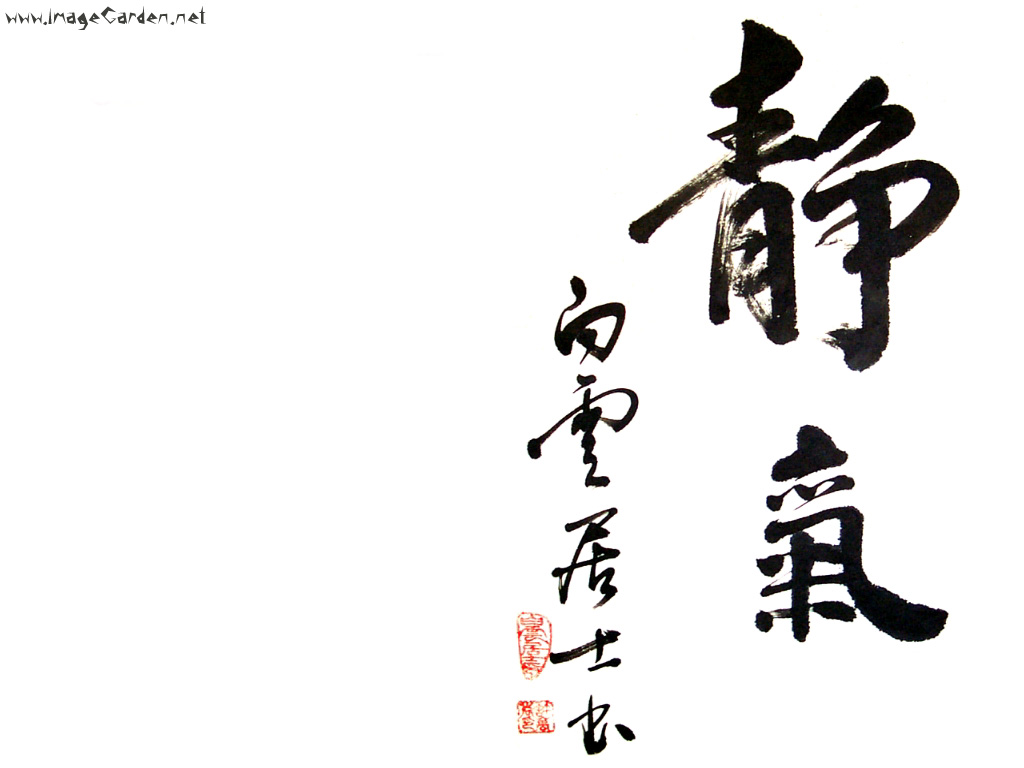 www.ImageGarden.net
靜氣
白雲居士书